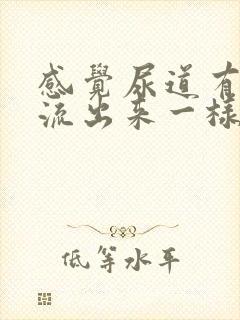 感覺尿道有
流出來一樣
低等水平